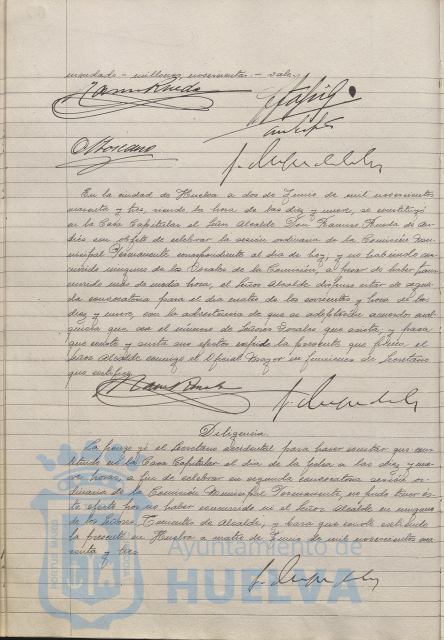 enmendado - millones, novecientos. - vale.
En la ciudad de Huelva a dos de Junio de mil novecientos
cuarenta y tres, siendo la hora de las diez y nueve, se constituyó
en la Casa Capitular el Señor Alcalde Don Ramiro Rueda de An-
drés con objeto de celebrar la sesión ordinaria de la Comisión Mu-
nicipal Permanente correspondiente al día de hoy, y no habiendo con-
currido ninguno de los Vocales de la Comisión, a pesar de haber trans-
currido más de media hora, el Señor Alcalde dispuso citar de segun-
da convocatoria para el día cuatro de los corrientes y hora de las
diez y nueve, con la advertencia de que se adoptarán acuerdos cual-
quiera que sea el número de Señores Vocales que asista, y para
que conste y surta sus efectos expido la presente que firma el
Señor Alcalde conmigo el Oficial Mayor en funciones de Secretario
que certifico.
Diligencia.
La pongo yo el Secretario accidental para hacer constar que cons-
tituido en la Casa Capitular el día de la fecha a las diez y nue-
ve horas, a fin de celebrar en segunda convocatoria sesión or-
dinaria de la Comisión Municipal Permanente, no pudo tener es-
te efecto por no haber concurrido ni el Señor Alcalde ni ninguno
de los Señores Tenientes de Alcalde, y para que conste extiendo
la presente en Huelva a cuatro de Junio de mil novecientos cua-
renta y tres.
Ayuntamiento de
HUELVA